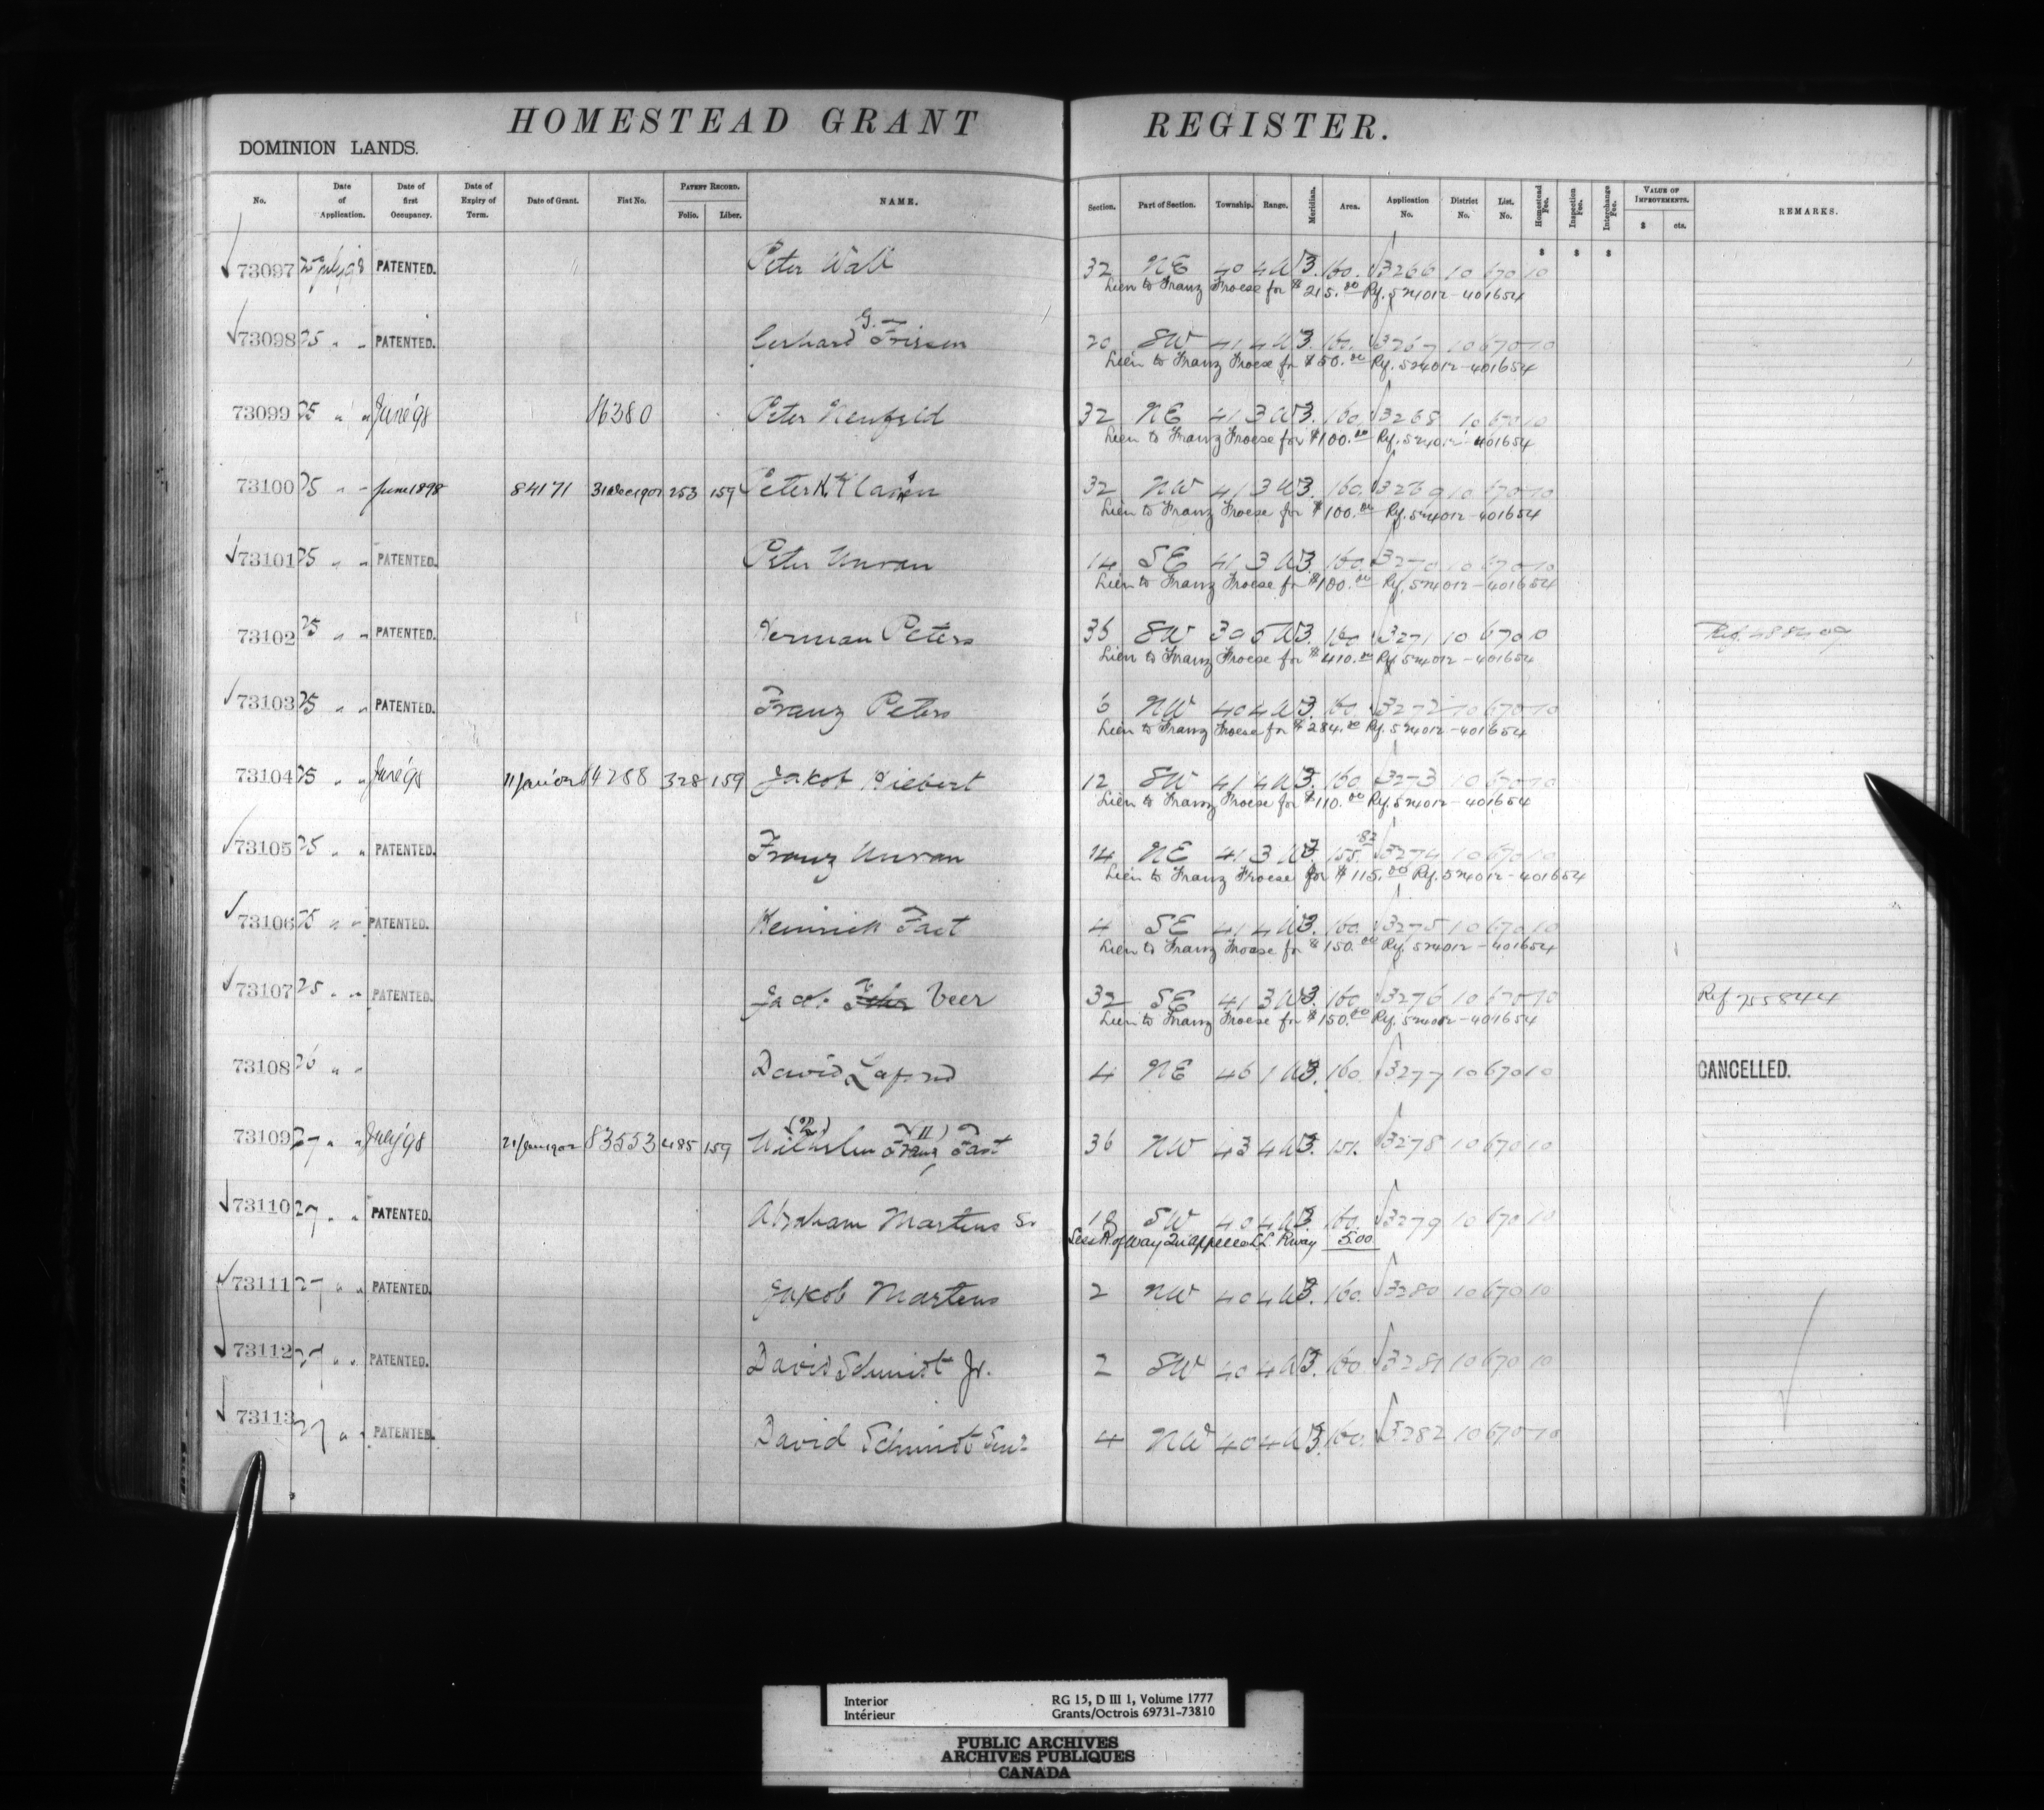 HOMESTEAD GRANT REGISTER.
DOMINION LANDS.
No. Date of Application. Date of first Occupancy. Date of Expiry of Term. Date of Grant. Fiat No. PATENT RECORD. Folio. Liber. NAME. Section. Part of Section. Township. Range. Meridian. Area. Application No. District No. List. No. Homestead Fee. Inspection Fee. Interchange Fee. VALUE OF IMPROVEMENTS. $ cts. REMARKS.
$ $ $
73097 25 July 98 PATENTED. Peter Wall 32 NE 40 4 W 3. 160. 3266 10 670 10
Lien to Franz Froese for $215.00 Rf. 524012-401654
73098 25 " " PATENTED. Gerhard G. Friesen 20 SW 41 4 W 3. 160. 3267 10 670 10
Lien to Franz Froese for $50.00 Rf. 524012-401654
73099 25 " " June '98 16380 Peter Neufeld 32 NE 41 3 W 3. 160. 3268 10 670 10
Lien to Franz Froese for $100.00 Rf. 524012-401654
73100 25 " " June 1898 84171 31 Dec 1901 253 159 Peter K Klassen 32 NW 41 3 W 3. 160. 3269 10 670 10
Lien to Franz Froese for $100.00 Rf. 524012-401654
73101 25 " " PATENTED. Peter Unrau 14 SE 41 3 W 3. 160. 3270 10 670 10
Lien to Franz Froese for $100.00 Rf. 524012-401654
73102 25 " " PATENTED. Herman Peters 36 SW 39 5 W 3. 160. 3271 10 670 10
Lien to Franz Froese for $410.00 Rf. 524012-401654
73103 25 " " PATENTED. Franz Peters 6 NW 40 4 W 3. 160. 3272 10 670 10
Lien to Franz Froese for $284.00 Rf. 524012-401654
73104 25 " " June '98 11 Jan'02 84288 328 159 Jakob Hiebert 12 SW 41 4 W 3. 160. 3273 10 670 10
Lien to Franz Froese for $110.00 Rf. 524012-401654
73105 25 " " PATENTED. Franz Unrau 14 NE 41 3 W 3. 155.82 3274 10 670 10
Lien to Franz Froese for $115.00 Rf. 524012-401654
73106 25 " " PATENTED. Heinrich Fast 4 SE 41 4 W 3. 160. 3275 10 670 10
Lien to Franz Froese for $150.00 Rf. 524012-401654
73107 25 " " PATENTED. Jacob Veer 32 SE 41 3 W 3. 160. 3276 10 670 10 Ref 755844
Lien to Franz Froese for $150.00 Rf. 524012-401654
73108 26 " " David 4 NE 46 1 W 3. 160. 3277 10 670 10 CANCELLED.
73109 27 " " July '98 21 Jan 1902 83553 485 159 Wilhelm (2) Franz (11) Fast 36 NW 43 4 W 3. 151. 3278 10 670 10
73110 27 " " PATENTED. Abraham Martens Sr 18 SW 40 4 W 3. 160. 3279 10 670 10
Less R. of Way Qu'appelle LL. Rway 5.00
73111 27 " " PATENTED. Jakob Martens 2 NW 40 4 W 3. 160. 3280 10 670 10
73112 27 " " PATENTED. David Schmidt Jr. 2 SW 40 4 W 3. 160. 3281 10 670 10
73113 27 " " PATENTED. David Schmidt Senr 4 NW 40 4 W 3. 160. 3282 10 670 10
Interior RG 15, D III 1, Volume 1777
Intérieur Grants/Octrois 69731-73810
PUBLIC ARCHIVES
ARCHIVES PUBLIQUES
CANADA